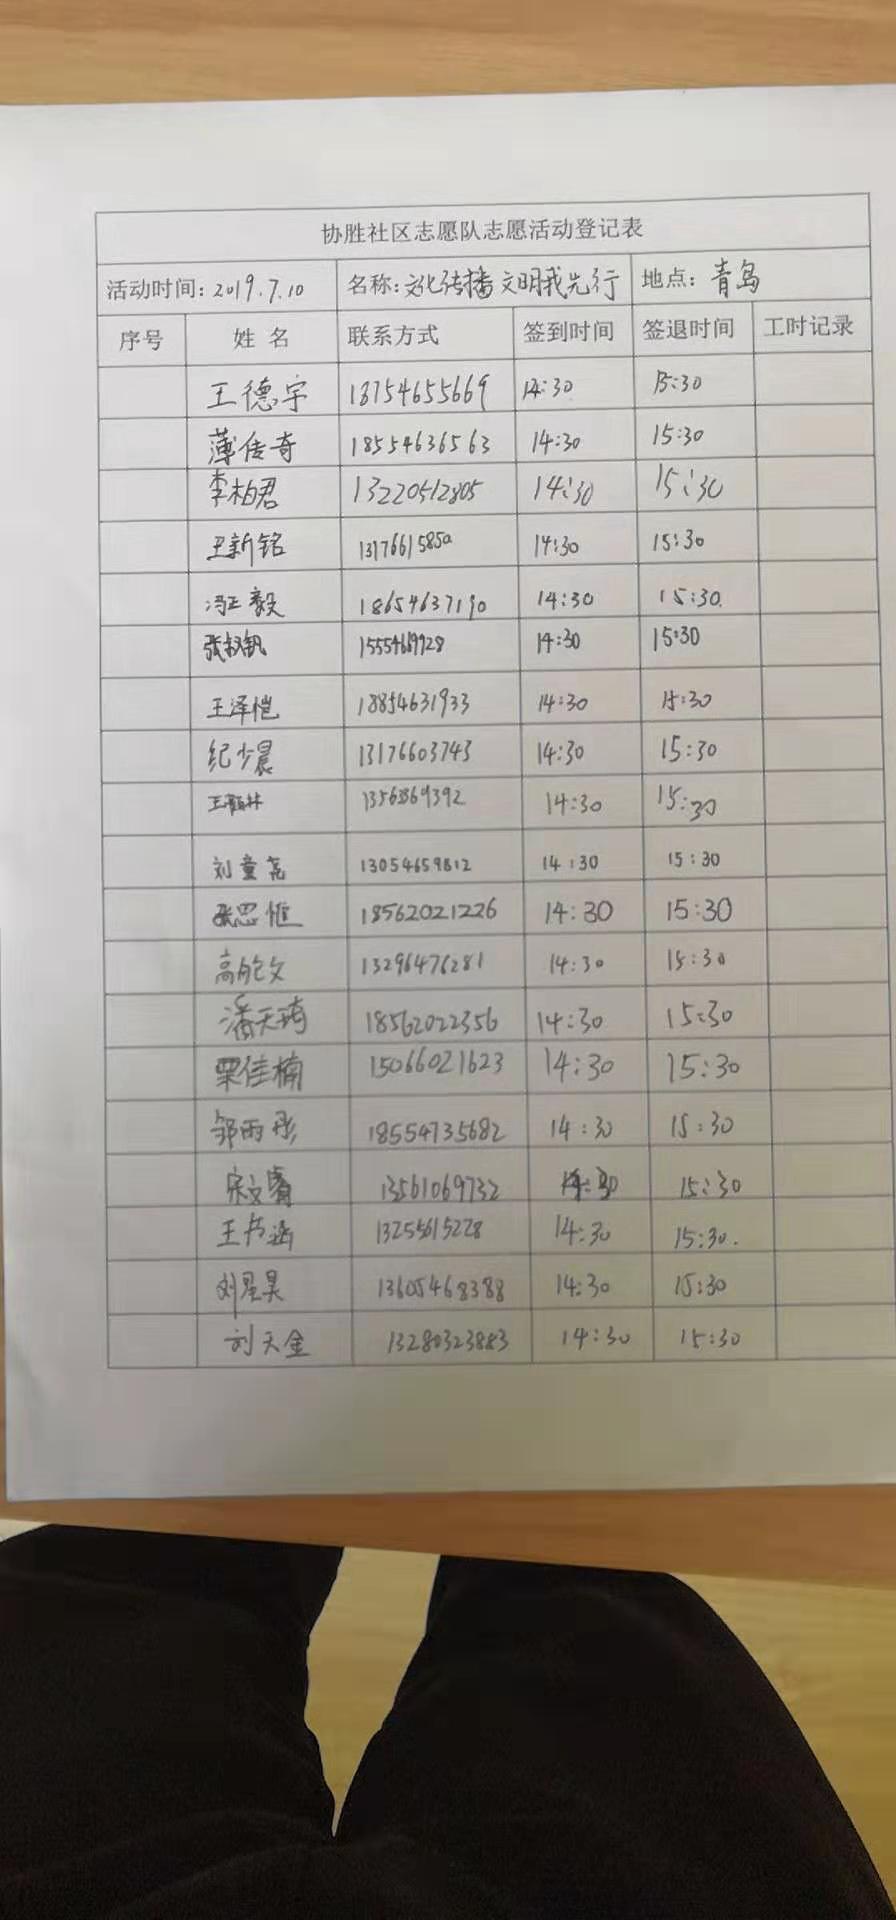 协胜社区志愿队志愿活动登记表
活动时间：2019.7.10 名称：文化传播文明我先行 地点：青岛
序号 姓名 联系方式 签到时间 签退时间 工时记录
王德宇 18754655669 14:30 15:30
薄传奇 18554636563 14:30 15:30
李柏君 13220512805 14:30 15:30
王新铭 14:30 15:30
冯正毅 18654637190 14:30 15:30
14:30 15:30
王泽恺 18854631933 14:30 15:30
纪少晨 13176603743 14:30 15:30
13562869392 14:30 15:30
刘童尧 13054659812 14:30 15:30
张思恒 18562021226 14:30 15:30
高能文 13296476281 14:30 15:30
潘天琦 18562022356 14:30 15:30
栗佳楠 15066021623 14:30 15:30
邹雨彤 18554735682 14:30 15:30
宋文睿 13561069732 14:30 15:30
王书涵 13255615228 14:30 15:30.
刘星昊 13605468388 14:30 15:30
刘天金 13280323883 14:30 15:30